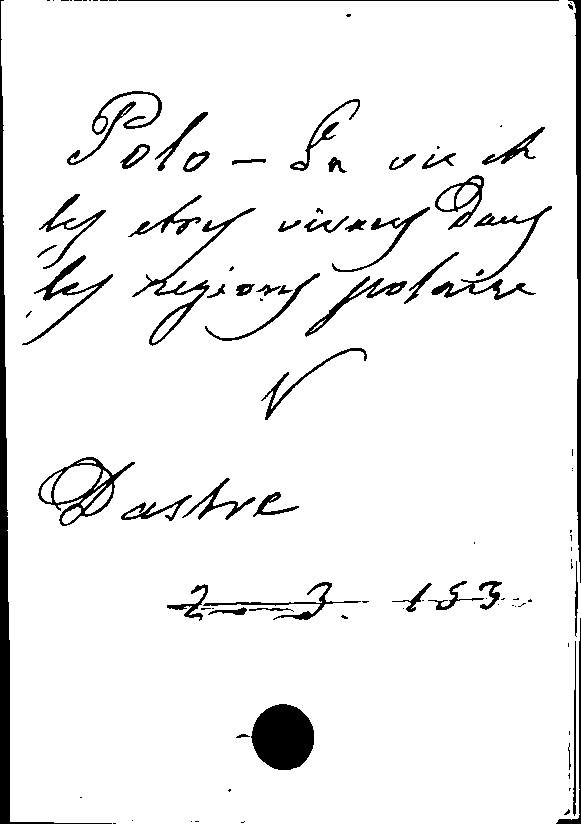 Polo - La vie et
les etres vivans Dans
les regions polaire
V
Dastre
2 3 153